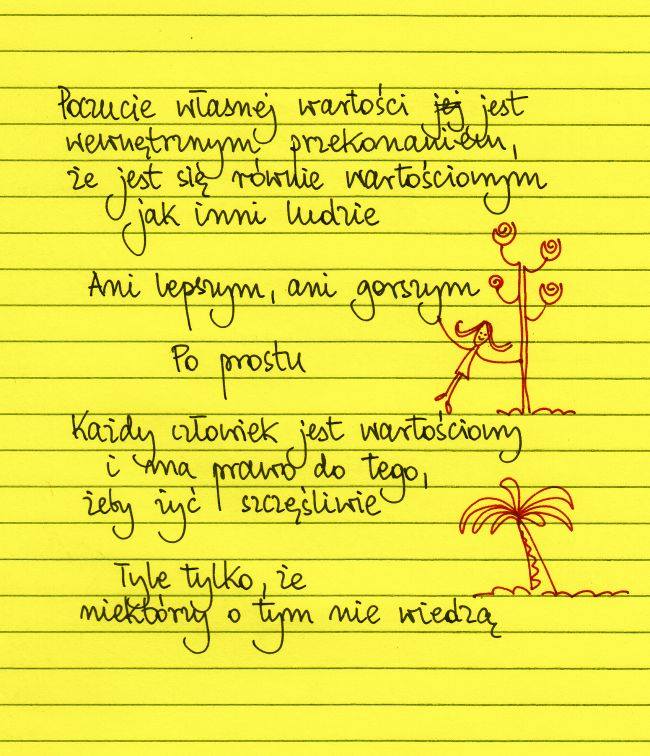 Poczucie własnej wartości jej jest
wewnętrznym przekonaniem,
że jest się równie wartościowym
jak inni ludzie
Ani lepszym, ani gorszym
Po prostu
Każdy człowiek jest wartościowy
i ma prawo do tego,
żeby żyć szczęśliwie
Tyle tylko, że
niektórzy o tym nie wiedzą